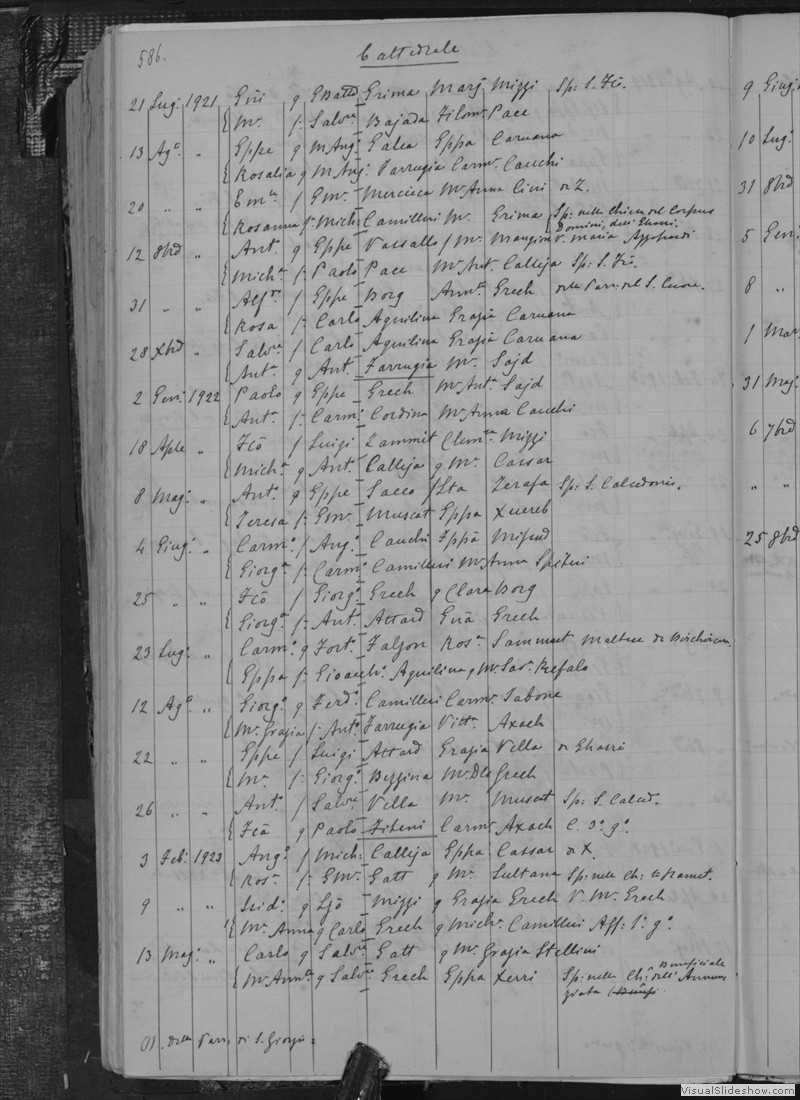 586.
Cattedrale
21 Lug. 1921 Giū q GBatta Grima Marj Mizzi Sp: S. Fcō.
{ Mª f. Salvre Bajada Filomª Pace
13 Agº „ Eppe q MAng. Galea Eppa Caruana
{ Rosalia q MAng. Farrugia Carmª Cauchi
20 „ „ Emle f Gmª Mercieca Mª Anna Cini di Z.
{ Rosanna f. Mich: Camilleri Mª Grima Sp: nella Chiesa del Corpus Domini, dell'
12 8bre „ Antº q Eppe Vassallo f Mª Mangion V. Maria
{ Michª f. Paolo Pace Mª Antª Calleja Sp: S. Fcō.
31 „ „ Alfrº f Eppe Borg Annª Grech della Parr: del S. Cuore.
{ Rosa f. Carlo Aquilina Grazia Caruana
28 Xbre „ Salvre f Carlo Aquilina Grazia Caruana
{ Antª q Antº Farrugia Mª Sajd
2 Gen: 1922 Paolo q Eppe Grech Mª Antª Sajd
{ Antª f. Carmº Cordina Mª Anna Cauchi
18 Aple „ Fcō f Luigi Zammit Clemza Mizzi
{ Michª q Antº Calleja q Mª Cassar
8 Mag: „ Antº q Eppe Sacco f Lta Zerafa Sp: S. Calcedonio.
{ Teresa f. Gmª Muscat Eppa Xuereb
4 Giug: „ Carmº f Ang: Cauchi Fppā Mifsud
{ Giorgª f. Carmº Camilleri Mª Anna Spiteri
25 „ „ Fcō f Giorgº Grech q Clara Borg
{ Giorgª f. Antº Attard Giā Grech
23 Lug: „ Carmº q Fortº Falzon Rosª Sammut Maltese di Birchircara.
{ Eppa f. Gioacchº Aquilina q Mª Savª Refalo
12 Agº „ Giorgº q Ferdº Camilleri Carmª Tabone
{ Mª Grazia f. Antº Farrugia Vittª Axach
22 „ „ Eppe f Luigi Attard Grazia Vella di Gharri
{ Mª f. Giorgº Bezzina Mª Dla Grech
26 „ „ Antº f Salvre Vella Mª Muscat Sp: S. Calced.
{ Fcā q Paolo Fiteni Carmª Axach C. 3º gº.
3 Feb: 1923 Angº f Mich: Calleja Eppa Cassar di X.
{ Rosª f. Gmª Gatt q Mª Sultana Sp: nella Ch:
9 „ „ Isidº q Ljō Mizzi q Grazia Grech V. M. Grech
{ Mª Anna q Carlo Grech q Michª Camilleri Aff: 1º gº.
13 Mag: „ Carlo q Salvre Gatt q Mª Grazia Stellini
{ Mª Annª q Salvre Grech Eppa Xerri Sp: nella Chª Beneficiale dell' Annunziata
della Parr. di S. Giorgio =
9 Giug
10 Lug:
31 8bre
5 Gen:
8 „
1 Mar
31 Mag:
6 7bre
„ „
25 8bre
VisualSlideshow.com